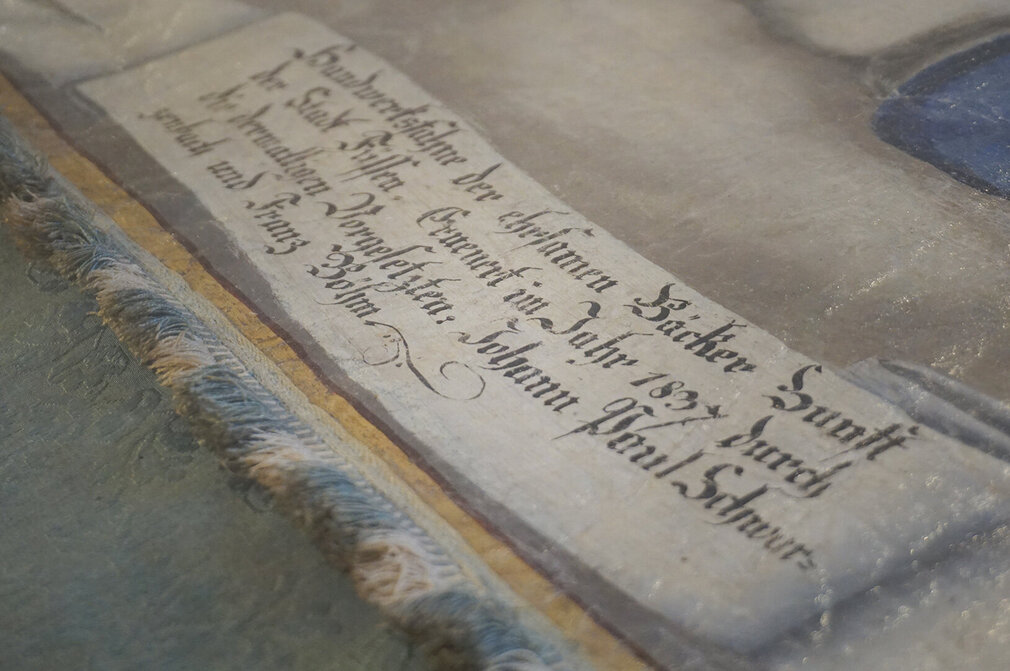 Handwerksfahne der ehrsamen Bäcker Zunft
der Stadt Füssen. Erneuert im Jahr 1837 durch
die dermaligen Vorgesetzten: Johann Paul Schwar=
zenbach und Franz Böhm